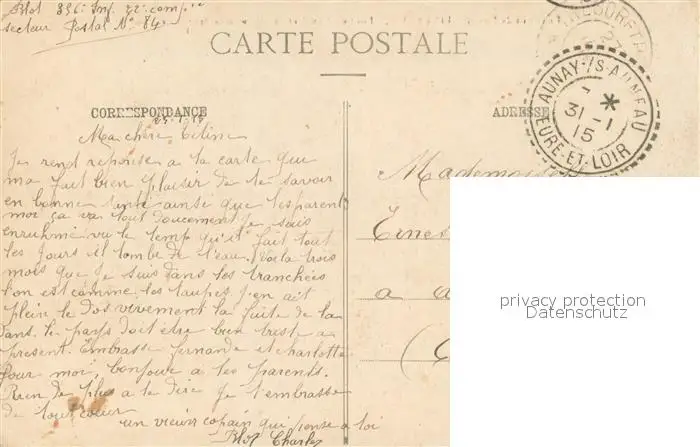 Blot 356e Inf. 22e comp.ie
secteur Postal No 84
CARTE POSTALE
CORRESPONDANCE
ADRESSE
AUNAY-S-AUNEAU
31-1
15
EURE-ET-LOIR
Ma chère Titine
Je rend reponse a la carte que
ma fait bien plaisir de te savoir
en bonne santé ainse que tes parents
moi ça va tout doucement je suis
enruhmé vu le temp qu'il fait tout
les jours il tombe de l'eau. Voila trois
mois que je suis dans les tranchées
l'on est comme les taupes j'en ait
plein le dos vivement la fuite de la
dans. le pays doit etre bien triste a
present. Embrasse fernande et charlotte
Pour moi, bonjour a tes parents.
Rien de plus a te dire je t'embrasse
de tout coeur
un vieux copain qui pense a toi
Blot Charles
Mademoiselle
Ernes
a a
(
privacy protection
Datenschutz